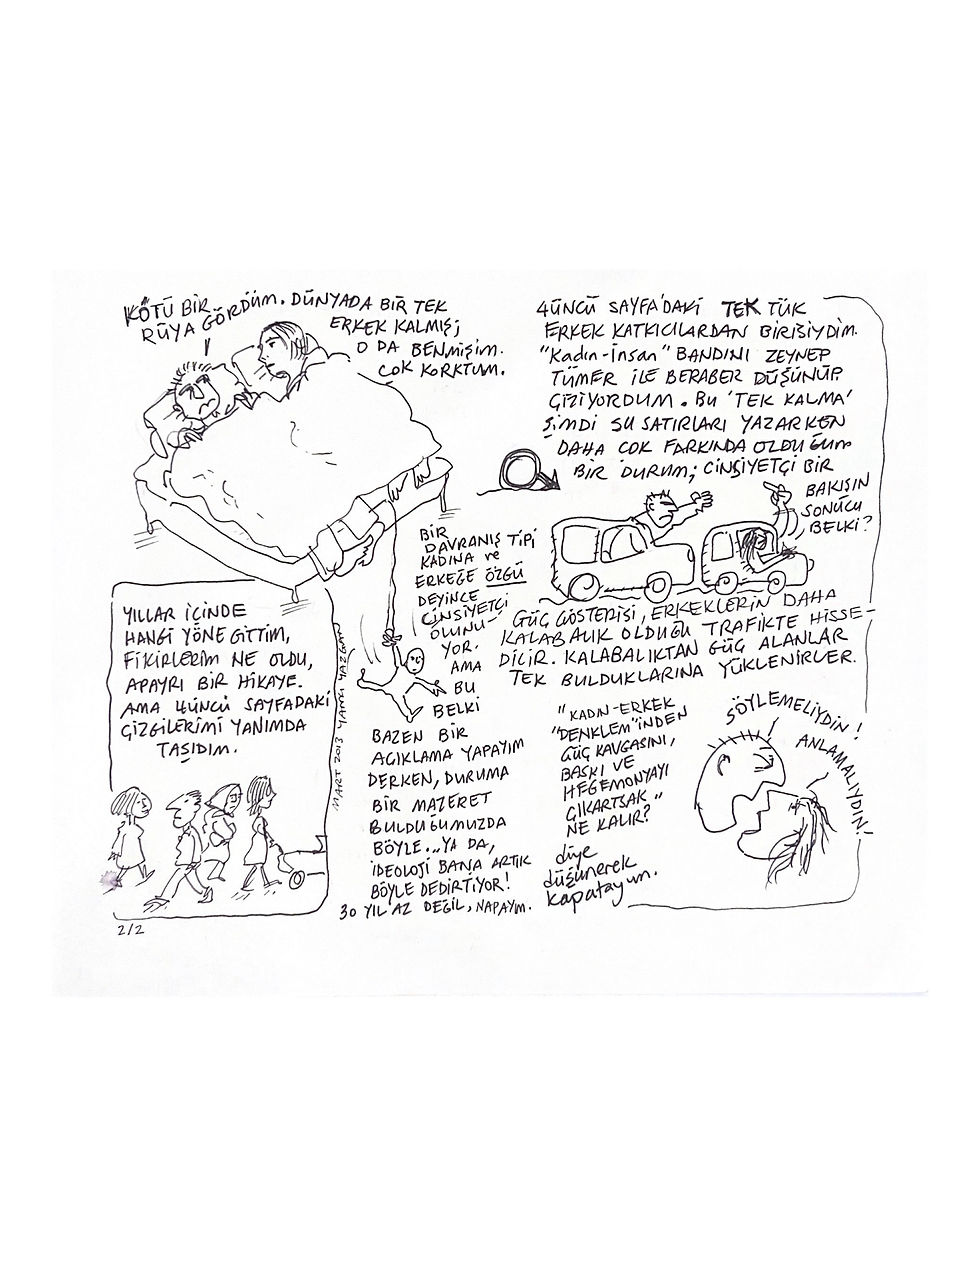 KÖTÜ BİR
RÜYA GÖRDÜM. DÜNYADA BİR TEK
ERKEK KALMIŞ;
O DA BENMİŞİM.
ÇOK KORKTUM.
4ÜNCÜ SAYFA'DAKİ TEK TÜK
ERKEK KATKICILARDAN BİRİSİYDİM.
"Kadın-İnsan" BANDINI ZEYNEP
TÜMER İLE BERABER DÜŞÜNÜP
ÇİZİYORDUM. BU 'TEK KALMA'
ŞİMDİ ŞU SATIRLARI YAZARKEN
DAHA ÇOK FARKINDA OLDUĞUM
BİR DURUM; CİNSİYETÇİ BİR
BAKIŞIN
SONUCU
BELKİ?
GÜÇ GÖSTERİSİ, ERKEKLERİN DAHA
KALABALIK OLDUĞU TRAFİKTE HİSSE-
DİLİR. KALABALIKTAN GÜÇ ALANLAR
TEK BULDUKLARINA YÜKLENİRLER.
YILLAR İÇİNDE
HANGİ YÖNE GİTTİM,
FİKİRLERİM NE OLDU,
APAYRI BİR HİKAYE.
AMA 4ÜNCÜ SAYFADAKİ
ÇİZGİLERİMİ YANIMDA
TAŞIDIM.
MART 2013 YANKI YAZGAN
BİR
DAVRANIŞ TİPİ
KADINA ve
ERKEĞE ÖZGÜ
DEYİNCE
CİNSİYETÇİ
OLUNU-
YOR.
AMA
BU
BELKİ
BAZEN BİR
AÇIKLAMA YAPAYIM
DERKEN, DURUMA
BİR MAZERET
BULDUĞUMUZDA
BÖYLE... YA DA,
İDEOLOJİ BANA ARTIK
BÖYLE DEDİRTİYOR!
30 YIL AZ DEĞİL, NAPAYIM.
"KADIN-ERKEK
"DENKLEM"İNDEN
GÜÇ KAVGASINI,
BASKI VE
HEGEMONYAYI
ÇIKARTSAK"
NE KALIR?
diye
düşünerek
kapatayım.
SÖYLEMELİYDİN!
ANLAMALIYDIN!
2/2